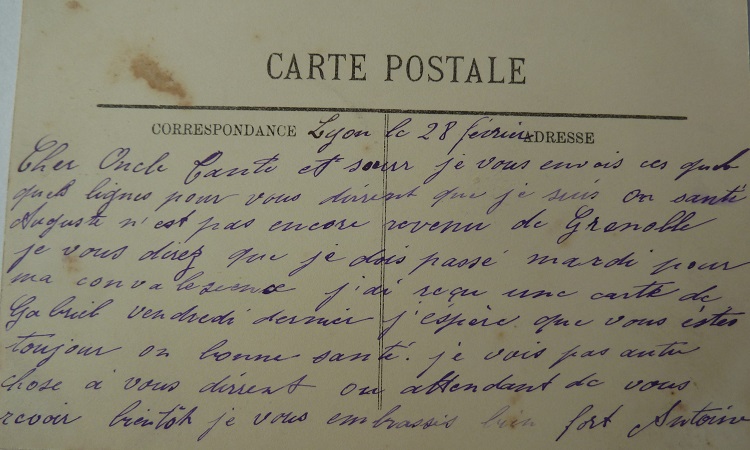 CARTE POSTALE
CORRESPONDANCE Lyon le 28 février ADRESSE
Cher Oncle Tante et sœur je vous envois ces quel
quels lignes pour vous dirrent que je suis en santé
Auguste n'est pas encore revenu de Grenoble
je vous direz que je dois passé mardi pour
ma convalesence j'ai reçu une carte de
Gabriel vendredi dernier j'espère que vous êstes
toujour en bonne santé. je vois pas autre
chose à vous dirrent en attendant de vous
revoir bientôt je vous embrassis bien fort Antoine